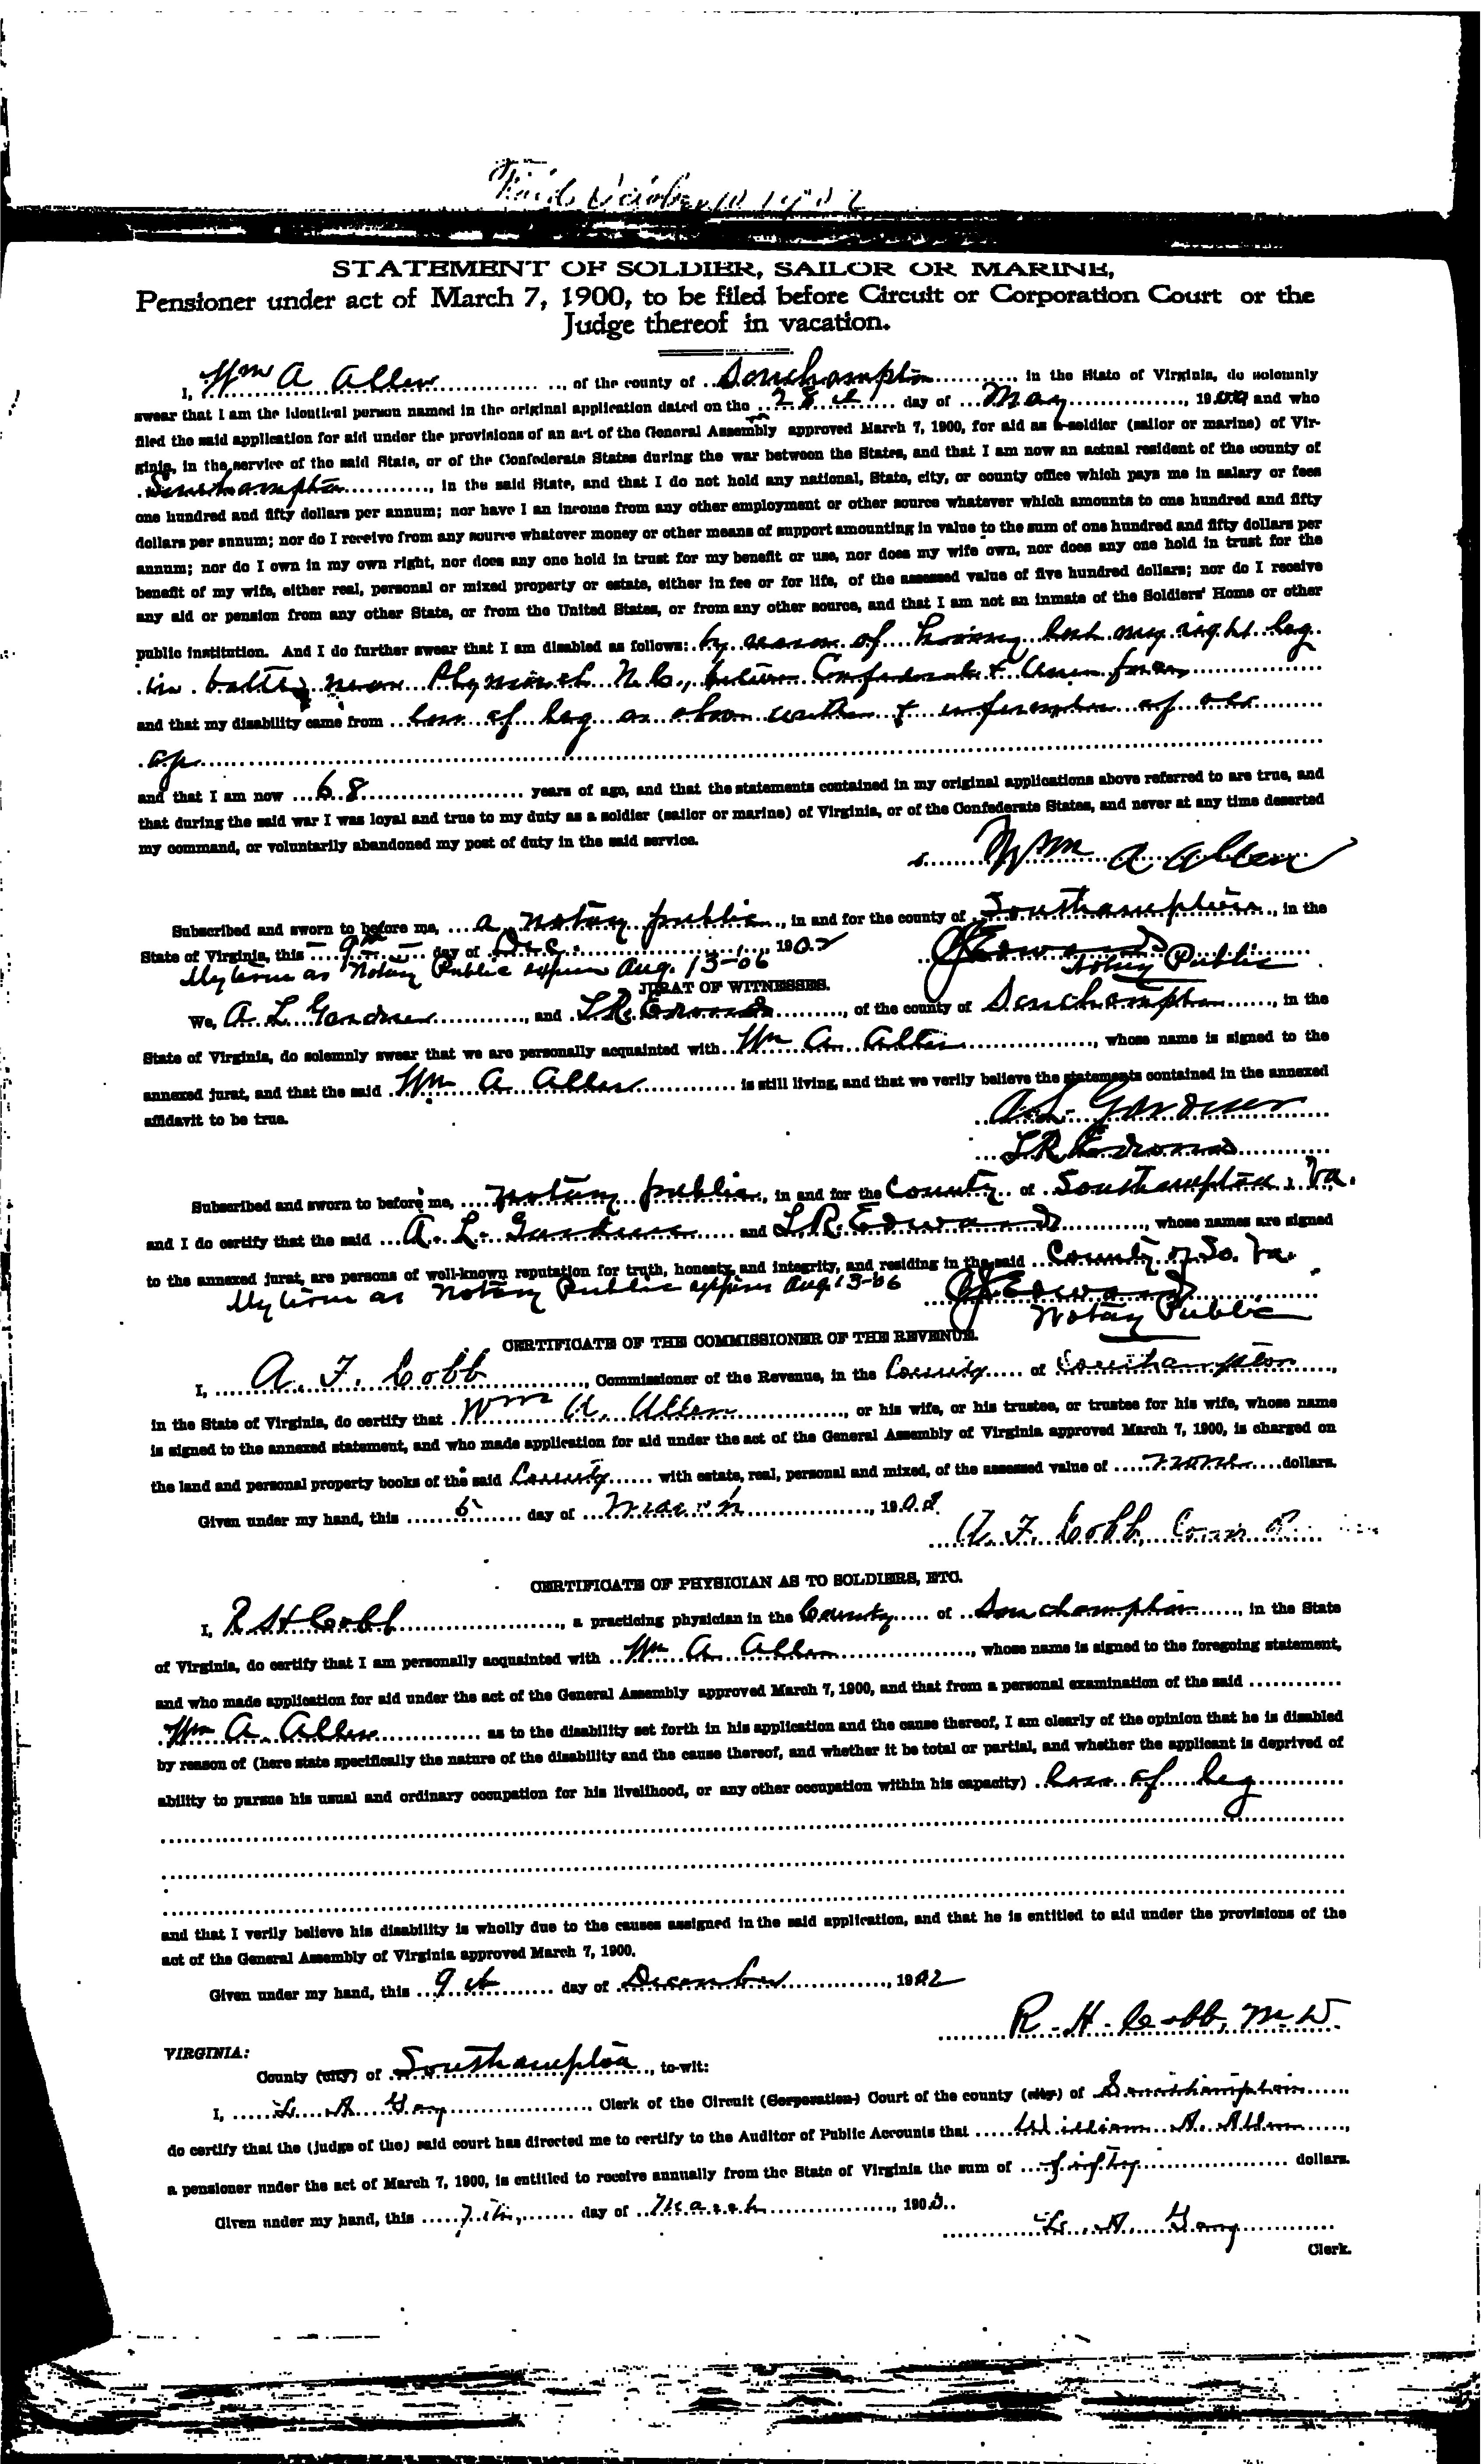 STATEMENT OF SOLDIER, SAILOR OR MARINE,
Pensioner under act of March 7, 1900, to be filed before Circuit or Corporation Court or the
Judge thereof in vacation.
I, Wm A Allen, of the county of Southampton, in the State of Virginia, do solemnly
swear that I am the identical person named in the original application dated on the 28th day of May, 1900 and who
filed the said application for aid under the provisions of an act of the General Assembly approved March 7, 1900, for aid as a soldier (sailor or marine) of Vir-
ginia, in the service of the said State, or of the Confederate States during the war between the States, and that I am now an actual resident of the county of
Southampton, in the said State, and that I do not hold any national, State, city, or county office which pays me in salary or fees
one hundred and fifty dollars per annum; nor have I an income from any other employment or other source whatever which amounts to one hundred and fifty
dollars per annum; nor do I receive from any source whatever money or other means of support amounting in value to the sum of one hundred and fifty dollars per
annum; nor do I own in my own right, nor does any one hold in trust for my benefit or use, nor does my wife own, nor does any one hold in trust for the
benefit of my wife, either real, personal or mixed property or estate, either in fee or for life, of the assessed value of five hundred dollars; nor do I receive
any aid or pension from any other State, or from the United States, or from any other source, and that I am not an inmate of the Soldiers' Home or other
public institution. And I do further swear that I am disabled as follows: by reason of having lost my right leg
in battle near Plymouth N.C., between Confederate & Union forces
and that my disability came from loss of leg as above written & infirmities of old
age
and that I am now 68 years of age, and that the statements contained in my original applications above referred to are true, and
that during the said war I was loyal and true to my duty as a soldier (sailor or marine) of Virginia, or of the Confederate States, and never at any time deserted
my command, or voluntarily abandoned my post of duty in the said service.
Wm A Allen
Subscribed and sworn to before me, a notary public, in and for the county of Southampton, in the
State of Virginia, this 9th day of Dec. 1902
Edwards
My term as Notary Public expires Aug. 13-'06
Notary Public
JURAT OF WITNESSES.
We, A L Gardner, and L R Edwards, of the county of Southampton, in the
State of Virginia, do solemnly swear that we are personally acquainted with Wm A. Allen, whose name is signed to the
annexed jurat, and that the said Wm A Allen is still living, and that we verily believe the statements contained in the annexed
affidavit to be true.
A. L. Gardner
L R Edwards
Subscribed and sworn to before me, notary public, in and for the County of Southampton, Va.
and I do certify that the said A. L. Gardner and L. R. Edwards, whose names are signed
to the annexed jurat, are persons of well-known reputation for truth, honesty, and integrity, and residing in the said County of So. Va.
My term as Notary Public expires Aug 13-06
Edwards
Notary Public
CERTIFICATE OF THE COMMISSIONER OF THE REVENUE.
I, A. F. Cobb, Commissioner of the Revenue, in the County of Southampton,
in the State of Virginia, do certify that Wm A. Allen, or his wife, or his trustee, or trustee for his wife, whose name
is signed to the annexed statement, and who made application for aid under the act of the General Assembly of Virginia approved March 7, 1900, is charged on
the land and personal property books of the said County with estate, real, personal and mixed, of the assessed value of none dollars.
Given under my hand, this 5 day of March, 190
A. F. Cobb, Com R
CERTIFICATE OF PHYSICIAN AS TO SOLDIERS, ETC.
I, R H Cobb, a practicing physician in the County of Southampton, in the State
of Virginia, do certify that I am personally acquainted with Wm A. Allen, whose name is signed to the foregoing statement,
and who made application for aid under the act of the General Assembly approved March 7, 1900, and that from a personal examination of the said
Wm A. Allen as to the disability set forth in his application and the cause thereof, I am clearly of the opinion that he is disabled
by reason of (here state specifically the nature of the disability and the cause thereof, and whether it be total or partial, and whether the applicant is deprived of
ability to pursue his usual and ordinary occupation for his livelihood, or any other occupation within his capacity) loss of leg
and that I verily believe his disability is wholly due to the causes assigned in the said application, and that he is entitled to aid under the provisions of the
act of the General Assembly of Virginia approved March 7, 1900.
Given under my hand, this 9th day of December, 1902
R. H. Cobb, M.D.
VIRGINIA:
County (city) of Southampton, to-wit:
I, L. A. Gay Clerk of the Circuit (Corporation) Court of the county (city) of Southampton
do certify that the (judge of the) said court has directed me to certify to the Auditor of Public Accounts that William A. Allen,
a pensioner under the act of March 7, 1900, is entitled to receive annually from the State of Virginia the sum of fifty dollars.
Given under my hand, this 7th, day of March, 1903.
L. A. Gay
Clerk.